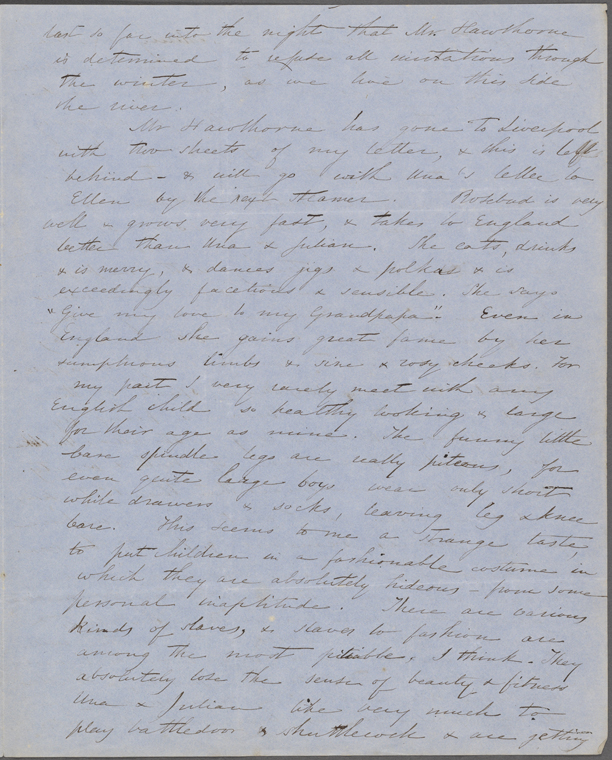 last so far into the night that Mr Hawthorne
is determined to refuse all invitations through
the winter, as we live on this side
the river.
Mr Hawthorne has gone to Liverpool
with two sheets of my letter, & this is left
behind - & will go with Una's letter to
Ellen by the next steamer. Rosebud is very
well & grows very fast, & takes to England
better than Una & Julian. She eats, drinks
& is merry, & dances jigs & polkas & is
exceedingly facetious & sensible. She says
"Give my love to my Grandpapa". Even in
England she gains great fame by her
sumptuous limbs & size & rosy cheeks. For
my part I very rarely meet with any
English child so healthy looking & large
for their age as mine. The funny little
bare spindle legs are really piteous, for
even quite large boys wear only short
white drawers & socks, leaving leg & knee
bare. This seems to me a strange taste,
to put children in a fashionable costume in
which they are absolutely hideous - from some
personal inaptitude. There are various
kinds of slaves, & slaves to fashion are
among the most pitiable, I think. They
absolutely lose the sense of beauty & fitness
Una & Julian like very much to
play battledoor & shuttlecock & are getting